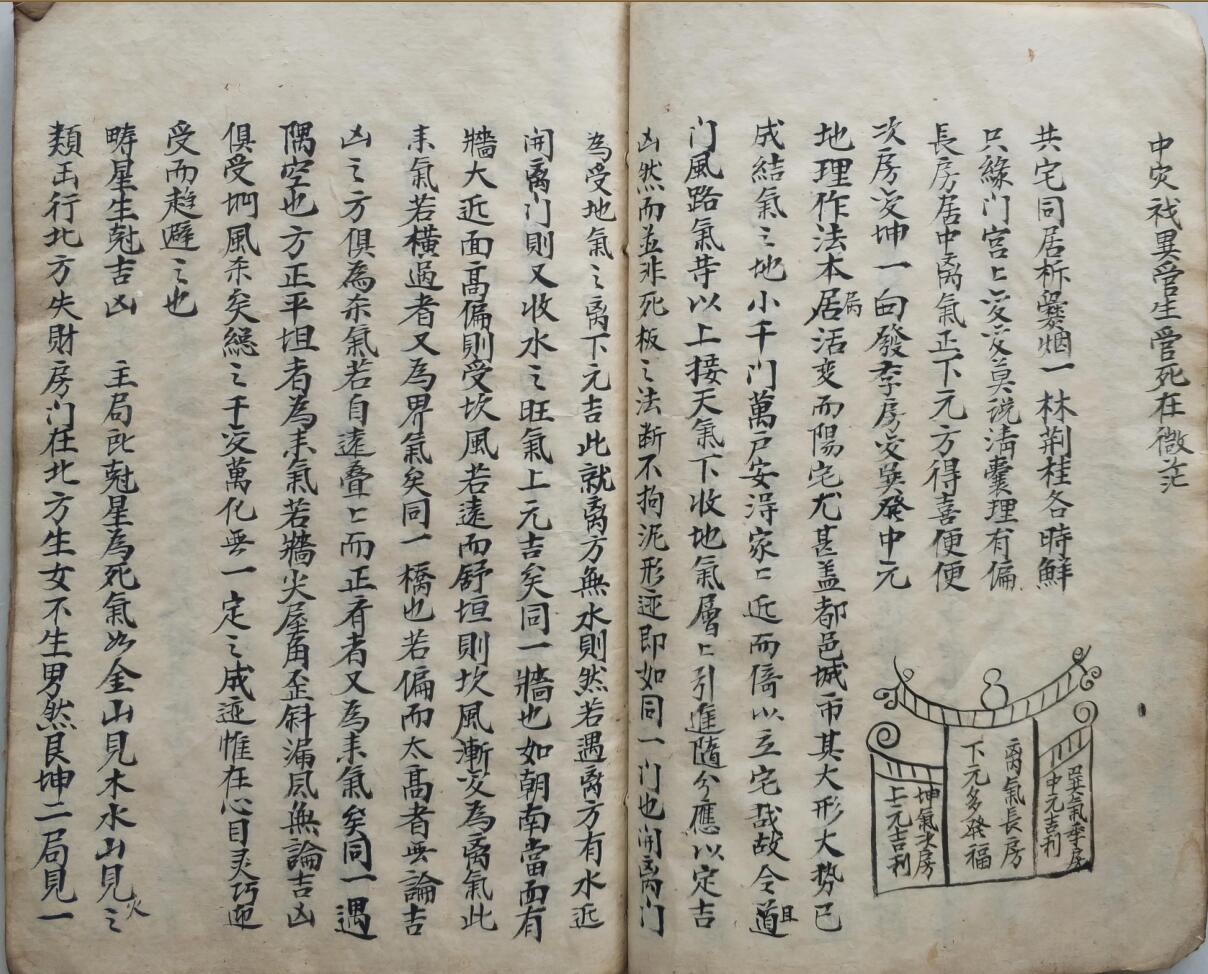 中灾祥異管生管死在微茫
共宅同居柝爨烟一林荆桂各時鮮
只緣门宮上变变莫說清囊理有偏
長房居中离氣正下元方得喜便便
次房变坤一白發季房变巽發中元
巽氣季房
中元吉利
离氣長房
下元多發福
坤氣次房
上元吉利
地理作法本居活变而陽宅尤甚盖都邑城市其大形大势已
局
成結氣之地小千门萬戸安淂家匕近而倚以立宅哉故令道
且
门風路氣等以上接天氣下收地氣層匕引進隨分應以定吉
凶然而並非死板之法断不拘泥形迹即如同一门也開离门
為受地氣之离下元吉此就离方無水則然若遇离方有水近
開离门則又收水之旺氣上元吉矣同一牆也如朝南當面有
牆大近面高偏則受坎風若遠而舒垣則坎風漸变為离氣此
来氣若橫過者又為界氣矣同一橋也若偏而太高者無論吉
凶之方俱為杀氣若自遠叠匕而正看者又為来氣矣同一遇
隅空也方正平坦者為来氣若牆尖屋角歪斜漏風無論吉凶
俱受坳風杀矣總之千变萬化無一定之成迹惟在心目灵巧迎
受而趋避之也
疇星生尅吉凶　主局所尅星為死氣如金山見木水山見之
火
類击行北方失財房门在北方生女不生男然艮坤二局見一